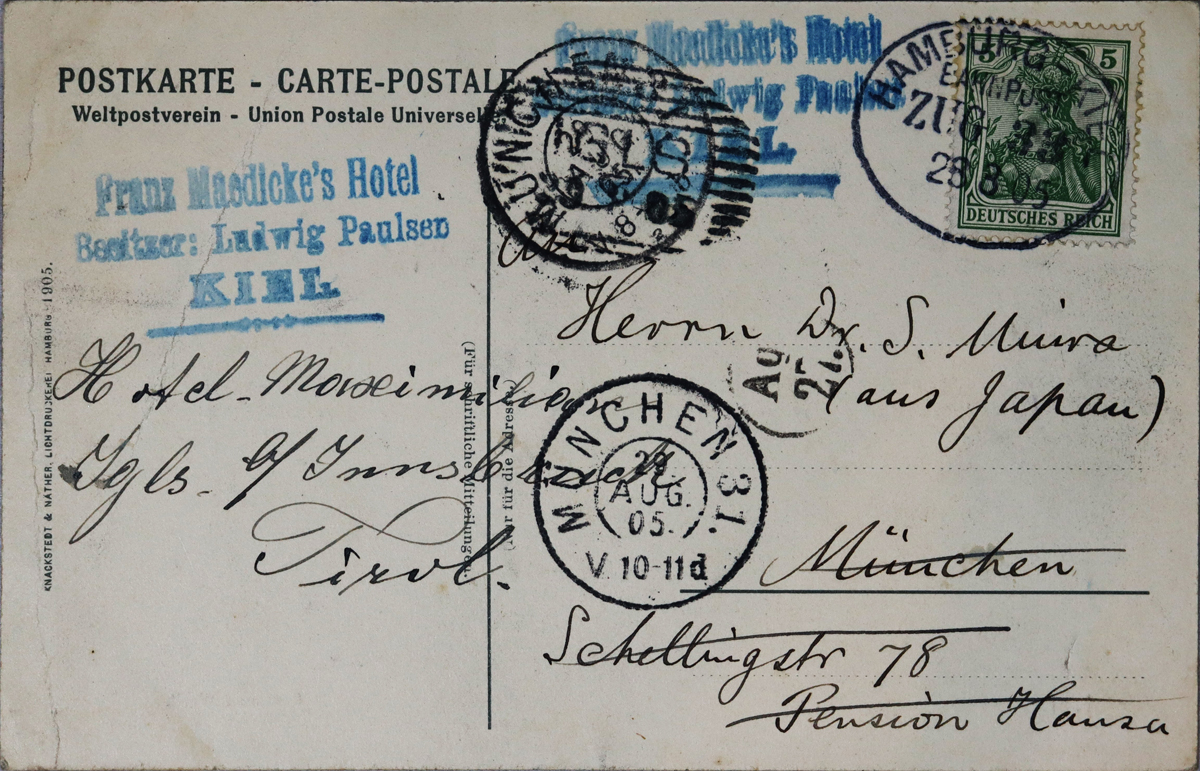 POSTKARTE - CARTE-POSTALE
Weltpostverein - Union Postale Universelle
Franz Maedicke's Hotel
Besitzer: Ludwig Paulsen
KIEL
Franz Maedicke's Hotel
Ludwig Paulsen
KIEL
5 5
DEUTSCHES REICH
HAMBURG
BAHNPOST
ZUG 33
28 8 05
MÜNCHEN
8. 05
Herrn Dr. S. Miura
(aus Japan)
München
Schellingstr 78
Pension Hansa
Hotel Maximilian
Igls. b/ Innsbruck
Tirol.
Ag
27.
MÜNCHEN 31.
29
AUG.
05.
V. 10-11 d
(Für schriftliche Mitteilungen)
(Nur für die Adresse)
KNACKSTEDT & NÄTHER, LICHTDRUCKEREI HAMBURG 1905.